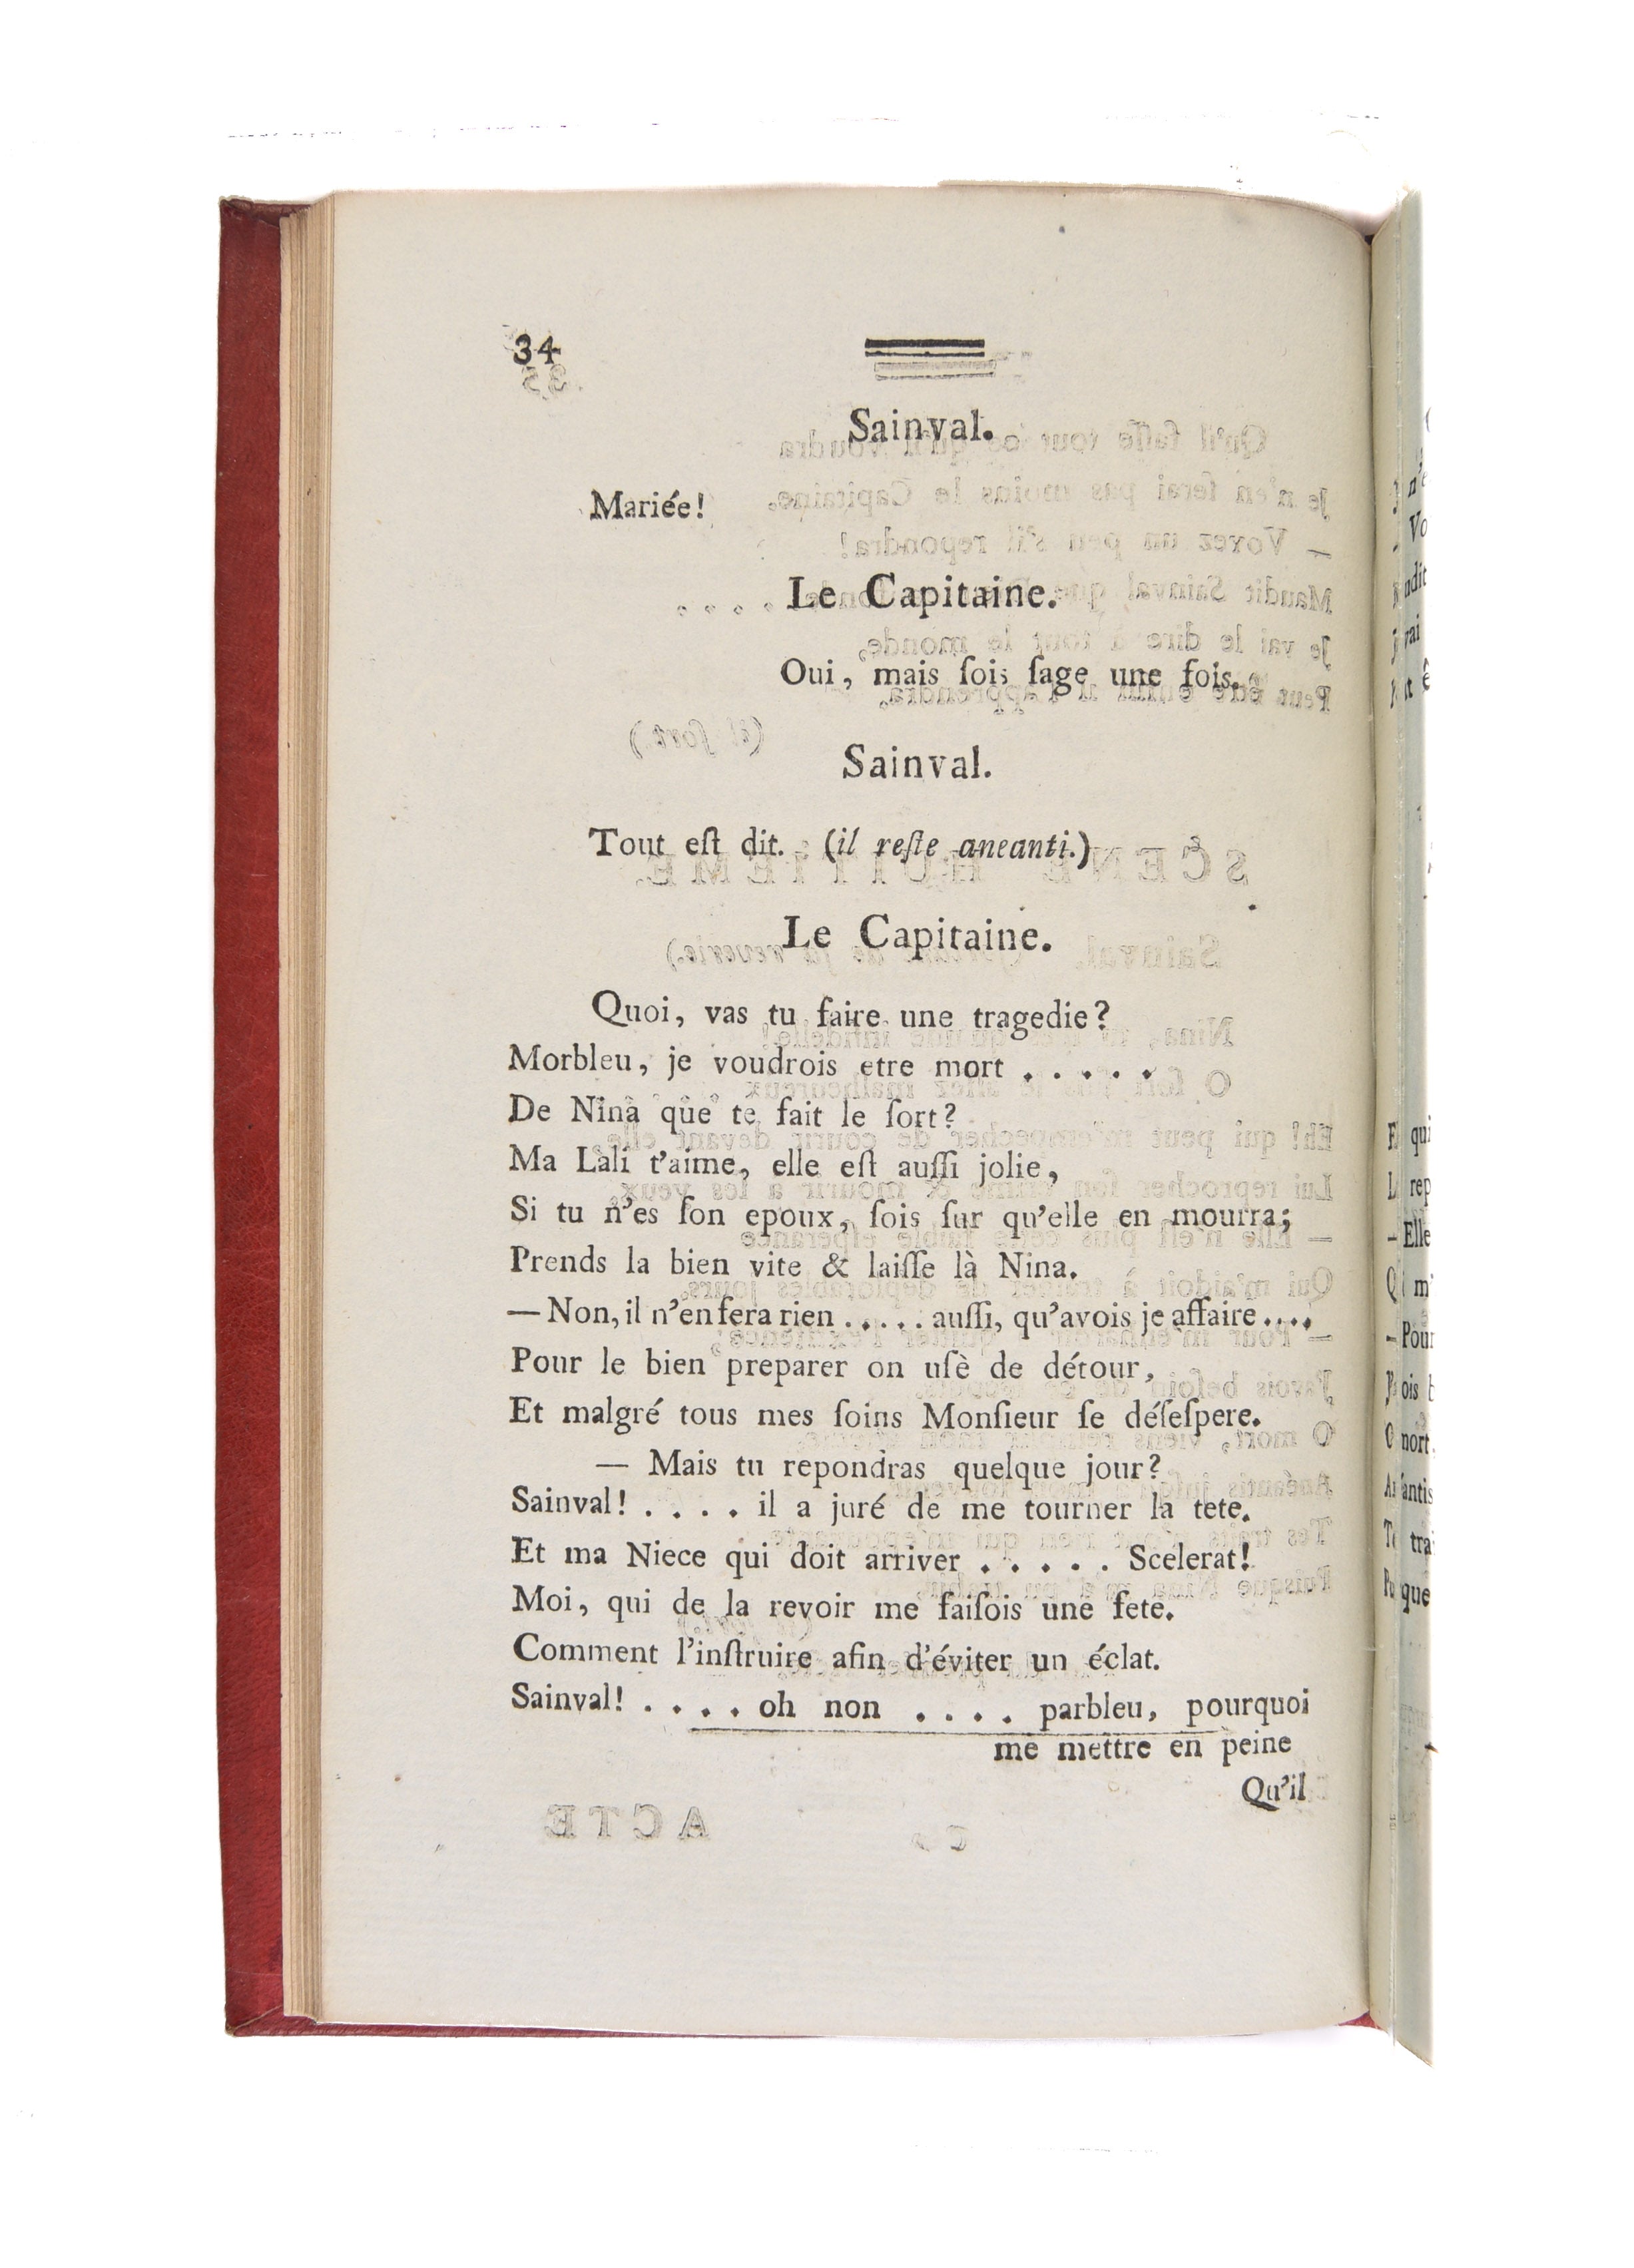 34
Sainval.
Mariée!
Le Capitaine.
Oui, mais ſois ſage une fois.
Sainval.
Tout eſt dit. (il reſte aneanti.)
Le Capitaine.
Quoi, vas tu faire une tragedie?
Morbleu, je voudrois etre mort . . . . .
De Nina que te fait le ſort?
Ma Lali t'aime, elle eſt auſſi jolie,
Si tu n'es ſon epoux, ſois ſur qu'elle en mourra;
Prends la bien vite & laiſſe là Nina.
— Non, il n'en fera rien ..... auſſi, qu'avois je affaire ....
Pour le bien preparer on uſè de détour,
Et malgré tous mes ſoins Monſieur ſe déſeſpere.
— Mais tu repondras quelque jour?
Sainval! . . . . il a juré de me tourner la tete.
Et ma Niece qui doit arriver . . . . . Scelerat!
Moi, qui de la revoir me faiſois une fete.
Comment l'inſtruire afin d'éviter un éclat.
Sainval! . . . . oh non . . . . parbleu, pourquoi
me mettre en peine
Qu'il